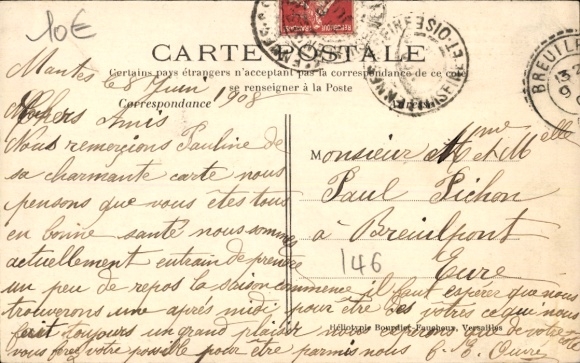 10€
CARTE POSTALE
Certains pays étrangers n'acceptant pas la correspondance de ce côté
se renseigner à la Poste
Correspondance
Adresse
SEINE-ET-OISE
BREUILP
13
9
Mantes le 8 Juin 1908
Mes Chers Amis
Nous remerçions Pauline de
sa charmante carte nous
pensons que vous êtes tous
en bonne santé nous sommes
actuellement entrain de prendre
un peu de repos la saison commence il faut espérer que nous
trouverons une après midi pour être des vôtres ce qui nous
ferait toujours un grand plaisir nous espérons que de votre côté
vous ferez votre possible pour être parmis nous
Monsieur Mme et Melle
Paul Pichon
à Breuilpont
Eure
146
Héliotypie Bourdier-Faucheux, Versailles